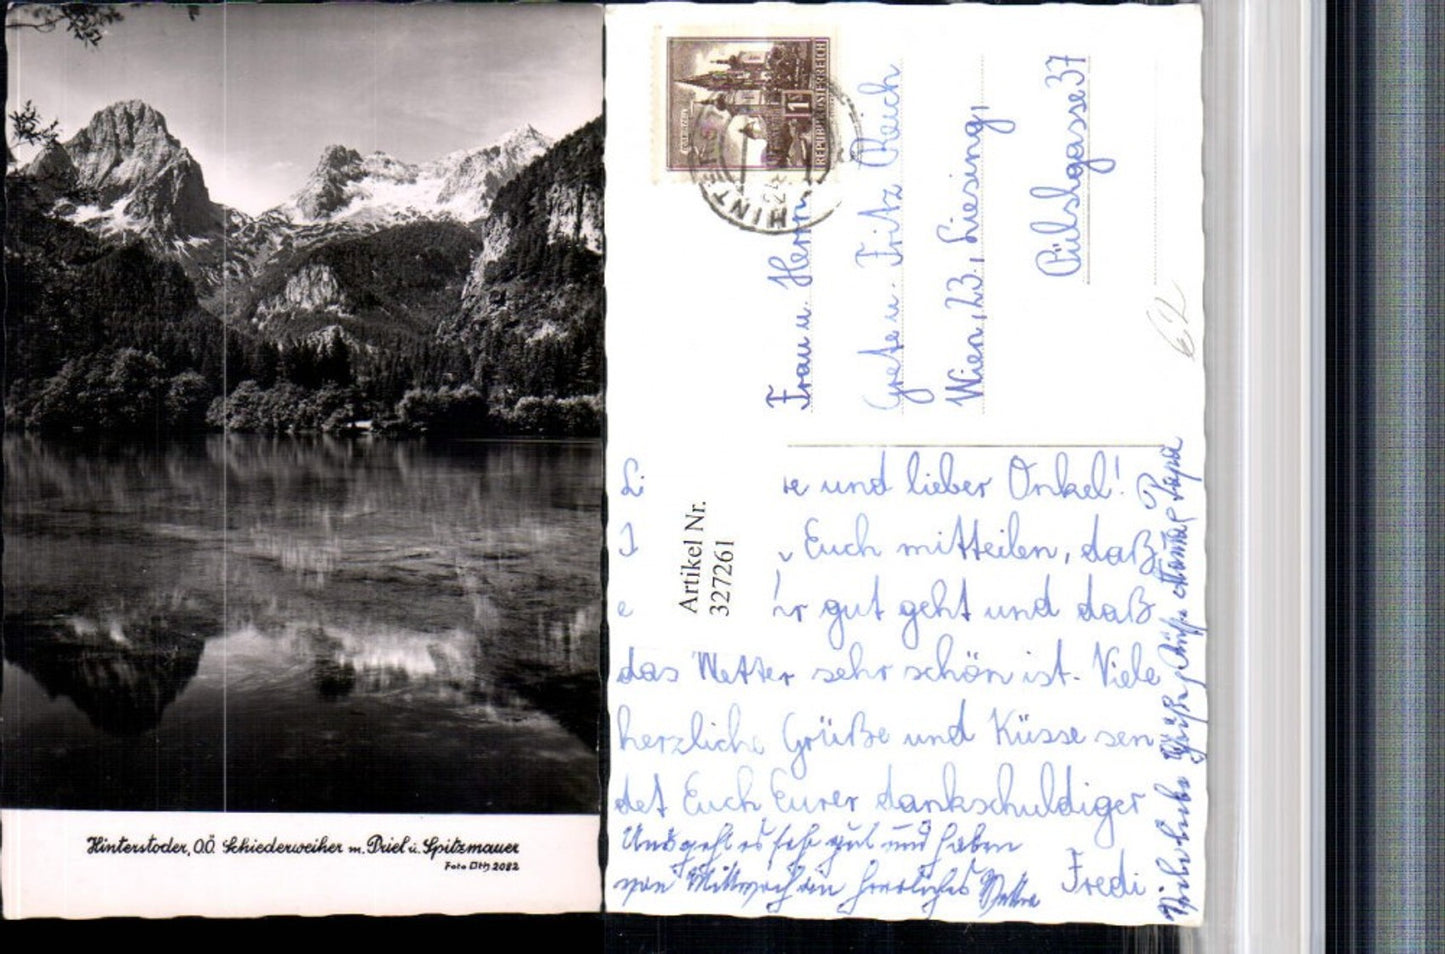 Hinterstoder, O.Ö. Schiederweiher m. Priel u. Spitzmauer
Foto Otth 2082
REPUBLIK ÖSTERREICH
1
HINT
Frau u. Herrn
Grete u. Fritz Reich
Wien, 23., Liesing,
Pülslgasse 37
62
Artikel Nr.
327261
Li re und lieber Onkel!
I Euch mitteilen, daß
e hr gut geht und daß
das Wetter sehr schön ist. Viele
herzliche Grüße und Küsse sen-
det Euch Eurer dankschuldiger
Fredi
Uns geht es sehr gut und haben
von Mittwoch ein herrliches Wetter
Viele liebe Grüße Mama Papa